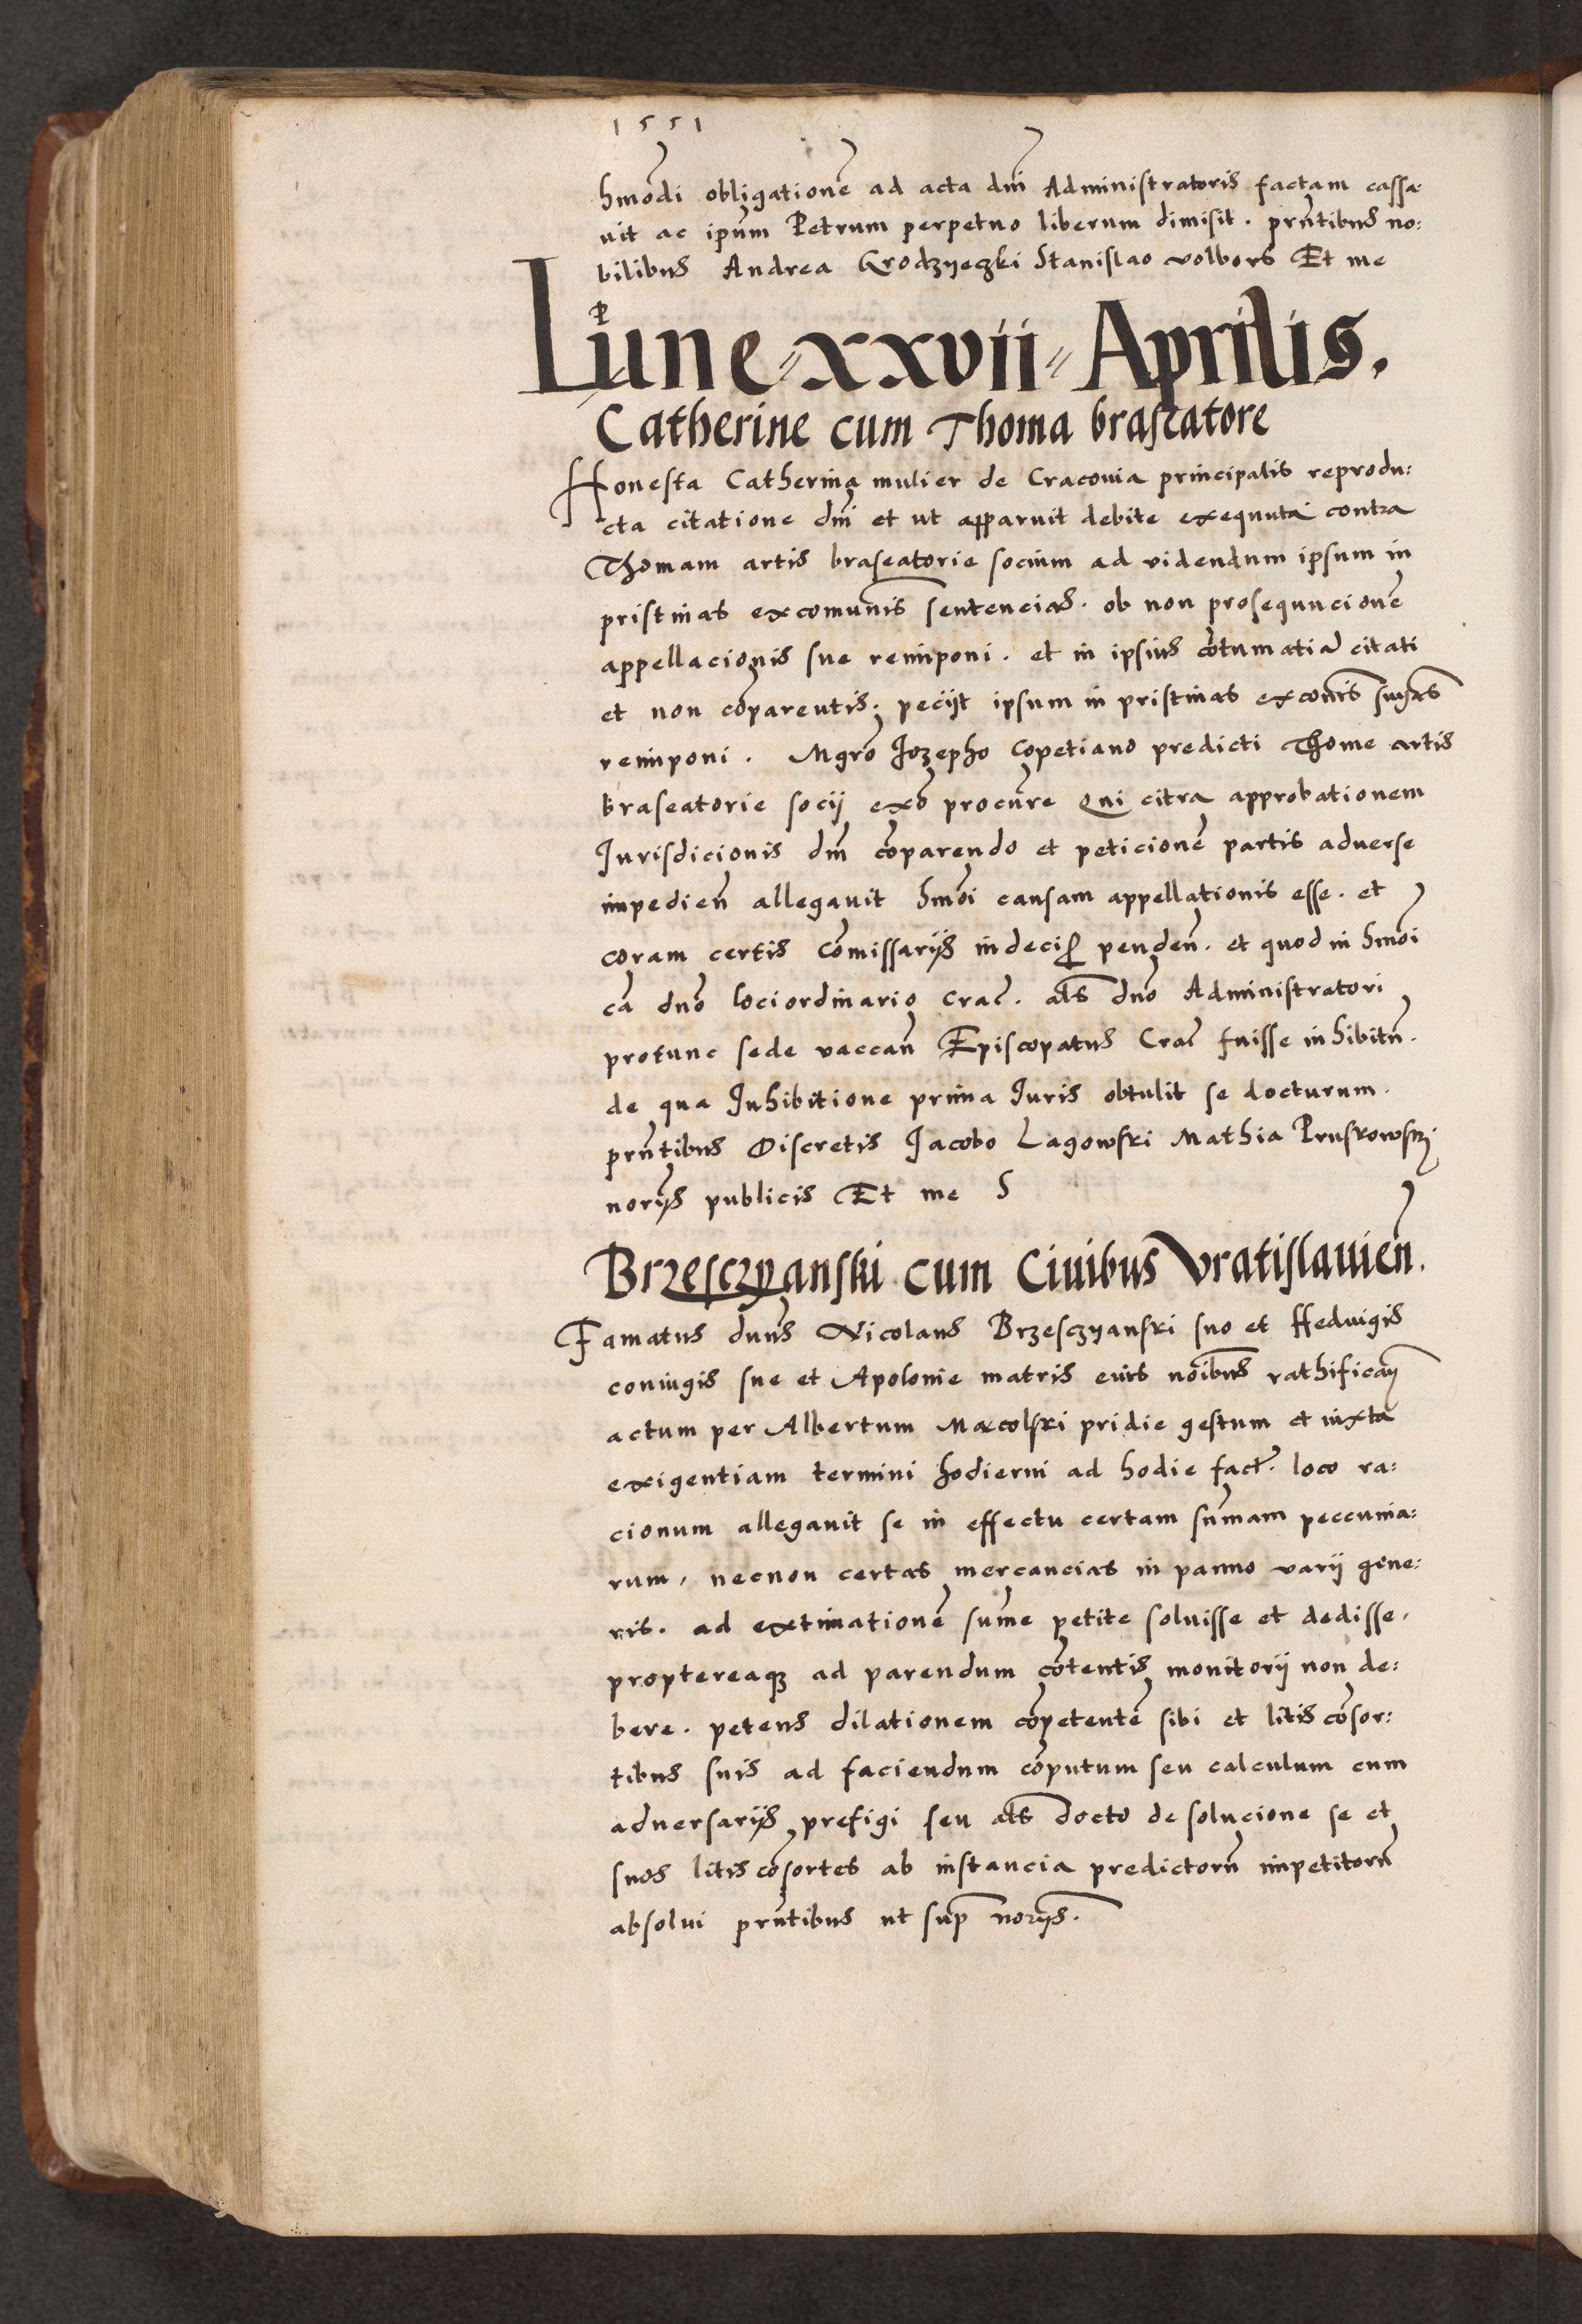 1551
hmodi obligationē ad acta dni Administratoris factam cassa:
uit ac ipsum Petrum perpetuo liberum dimisit. pntibus no:
bilibus Andrea Grodzyeczki Stanislao volbors Et me
Lune xxvii Aprilis.
Catherine cum Thoma braseatore
Honesta Catherina mulier de Cracouia principalis reprodu:
cta citatione dni et ut apparuit debite exequuta contra
Thomam artis braseatorie socium ad videndum ipsum in
pristinas excomunis sentencias. ob non prosequucionē
appellacionis sue reimponi. et in ipsius cōtumatiā citati
et non cōparentis. peciit ipsum in pristinas exconis
reimponi. Mgro Jozepho Copetiano predicti Thome artis
braseatorie socij exo procure Qui citra approbationem
Jurisdicionis dni cōparendo et peticionē partis aduerse
impedien̄ allegauit hmoi causam appellationis esse. et
coram certis Cōmissarijs indecis penden̄. et quod in hmoi
ca dno lociordinario Crac̄. als dno Administratori
protunc sede vaccan̄ Episcopatus Crac̄ fuisse inhibitū.
de qua Inhibitione prima Juris obtulit se docturum.
pntibus Discretis Jacobo Lagowski Mathia Pruskowski
norijs publicis Et me S
Brzesczyanski cum Ciuibus Vratislauien̄.
Famatus dnus Nicolaus Brzesczyanski suo et Heduigis
coniugis sue et Apolonie matris eius noibus rathifican̄
actum per Albertum Macolski pridie gestum et iuxta
exigentiam termini hodierni ad hodie fact. loco ra:
cionum allegauit se in effectu certam sūmam peccunia:
rum, necnon certas mercancias in panno varij gene:
ris. ad extimationē sūme petite soluisse et dedisse,
proptereaq3 ad parendum cōtentis monitorij non de:
bere. petens dilationem cōpetentē sibi et litis cōsor:
tibus suis ad faciendum cōputum seu calculum cum
aduersarijs prefigi seu als docto de solucione se et
suos litis cōsortes ab instancia predictorū impetitorū
absolui pntibus ut sup norijs.